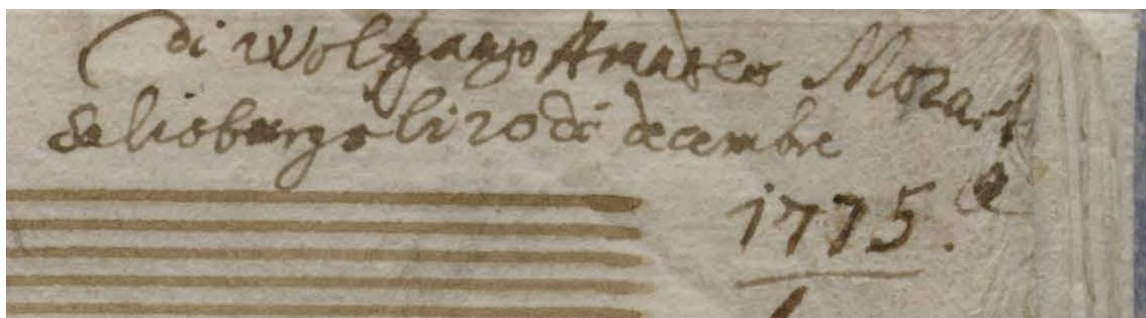 di Wolfgango Amadeo Mozart
Salisburgo li 20 di decembre
1775.